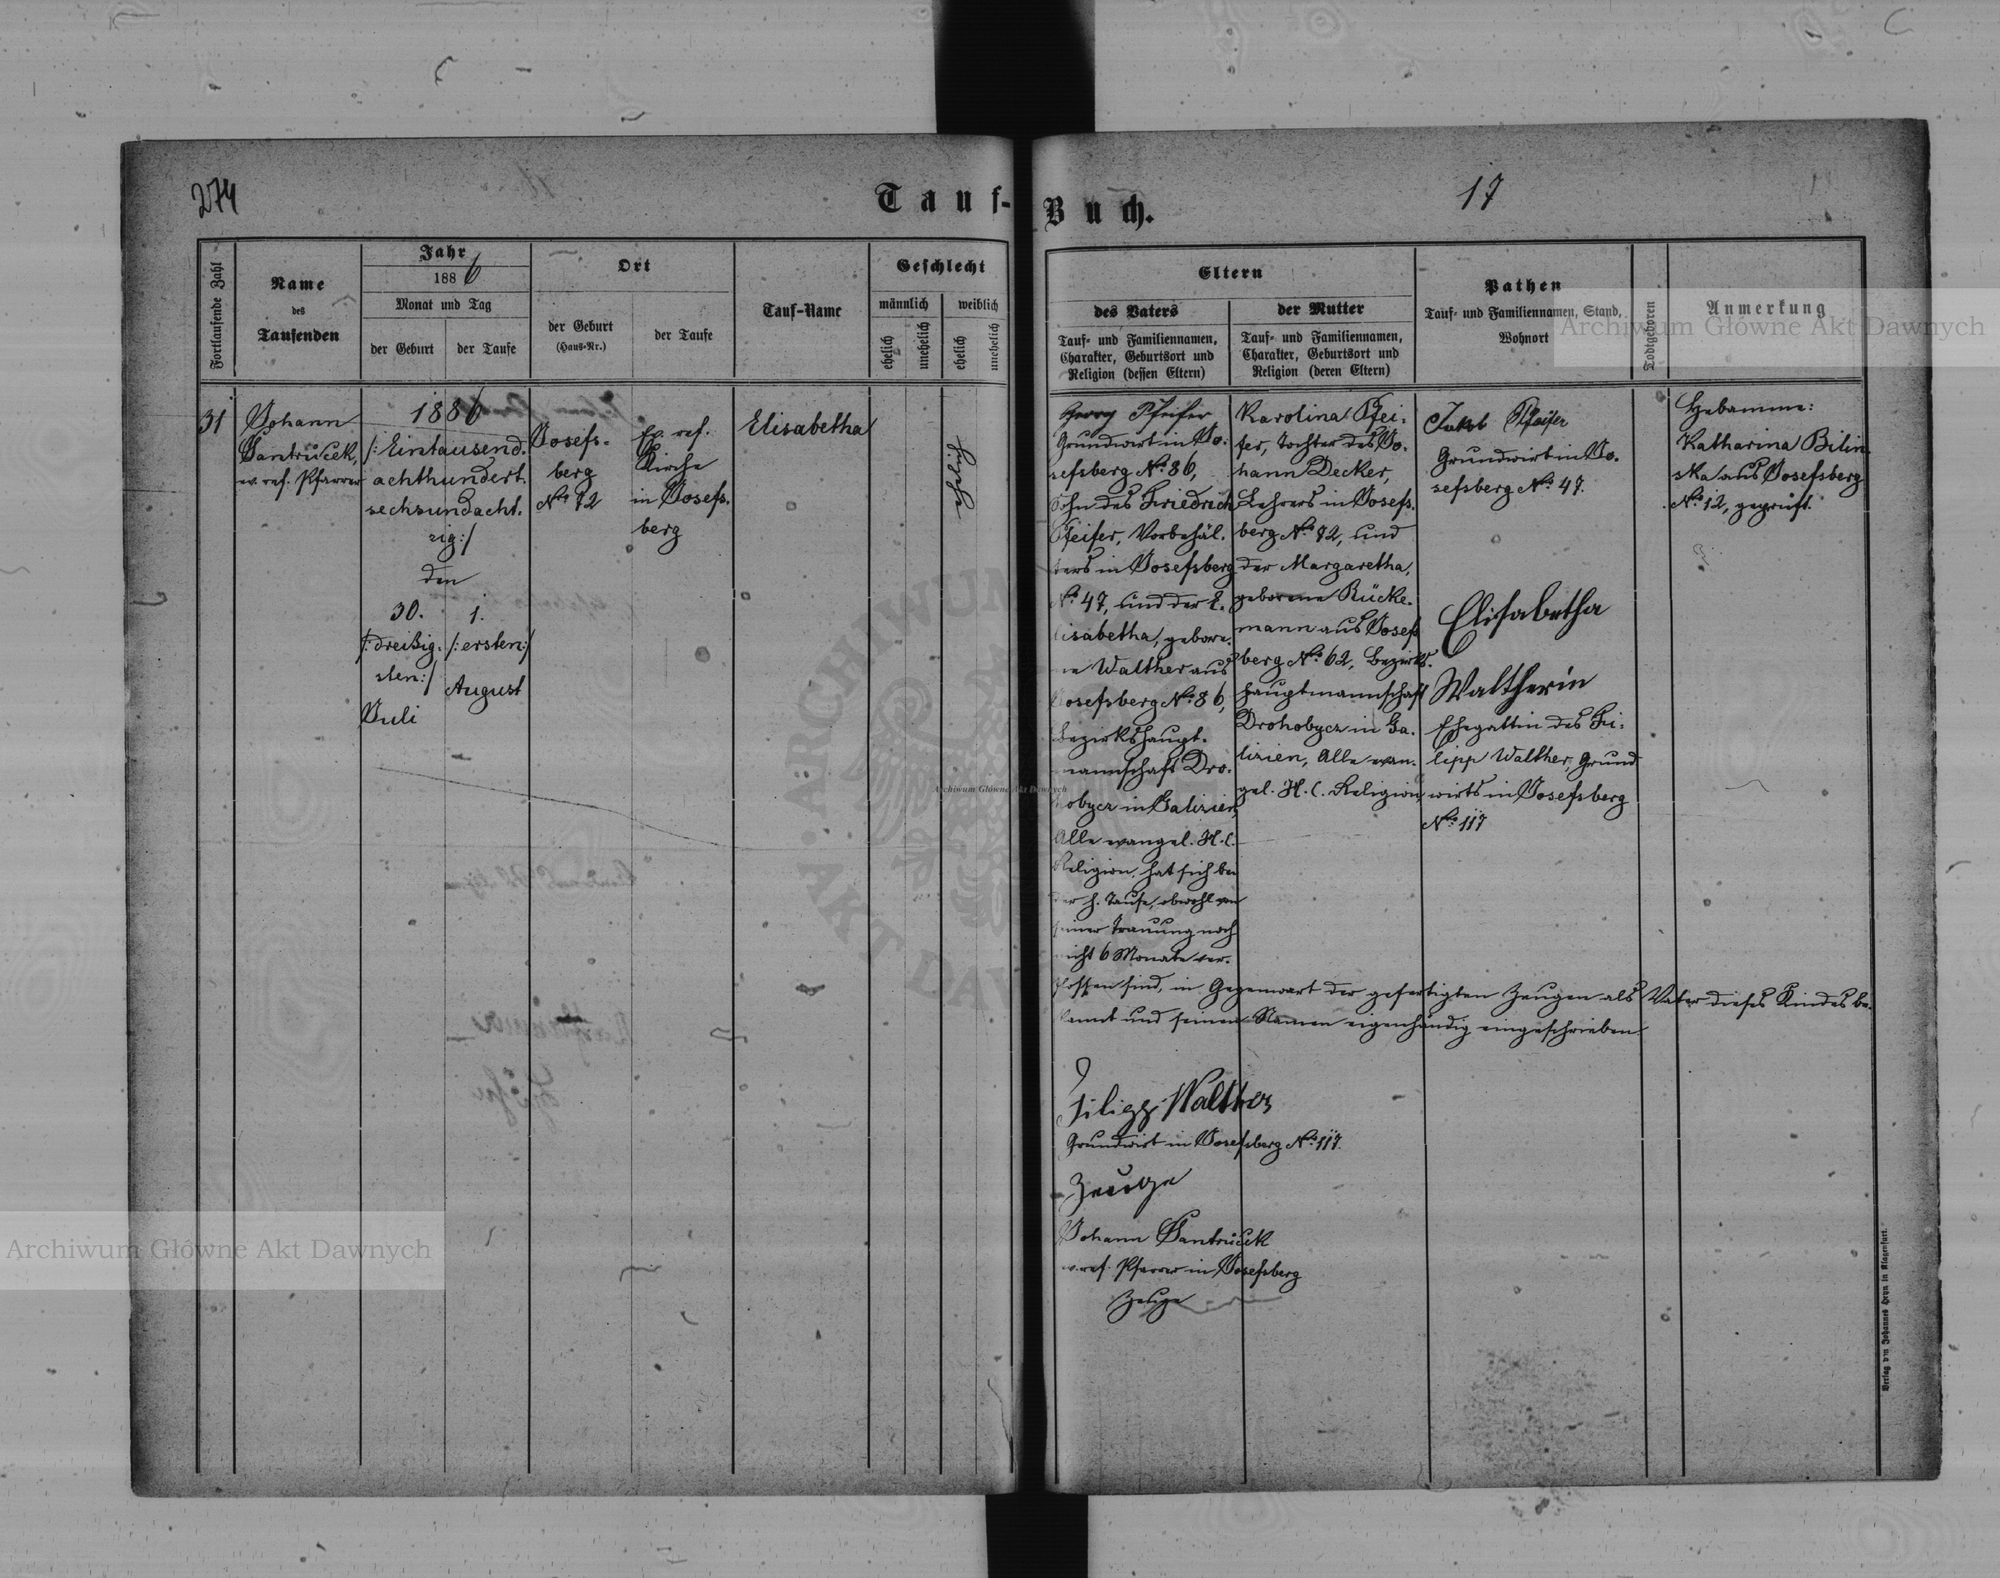 274
17
Tauf-
Buch.
Fortlaufende Zahl
Name
des
Taufenden
Jahr
1886
Monat und Tag
der Geburt
der Taufe
Ort
der Geburt
(Haus-Nr.)
der Taufe
Tauf-Name
Geschlecht
männlich
weiblich
ehelich
unehelich
ehelich
unehelich
Eltern
des Vaters
Tauf- und Familiennamen,
Charakter, Geburtsort und
Religion (dessen Eltern)
der Mutter
Tauf- und Familiennamen,
Charakter, Geburtsort und
Religion (deren Eltern)
Pathen
Tauf- und Familiennamen, Stand,
Wohnort
Todtgeboren
Anmerkung
31
Johann
Jantrůček,
ev. ref. Pfarrer
1886
/:Eintausend.
achthundert.
sechsundacht.
zig:/
den
30.
/:dreißig.
sten:/
Juli
1.
/:ersten:/
August
Josefs-
berg
No. 72
Ev. ref.
Kirche
in Josefs.
berg
Elisabetha
Pfeifer
Grundwirt in Jo.
sefsberg No. 86,
Sohn des Friedrich
Pfeifer, Vorbehäl.
ters in Josefsberg
No. 47, und der E.
lisabetha, gebore.
ne Walther aus
Josefsberg No. 86,
Bezirkshaupt.
mannschaft Dro.
hobycz in Galizien,
Alle evangel. H. C.
Religion, hat sich bei
der h. Taufe, obwohl von
seiner Trauung noch
nicht 6 Monate ver.
flossen sind, in Gegenwart der gefertigten Zeugen als Vater dieses Kindes be.
kannt und seinen Namen eigenhändig eingeschrieben
Filipp Walther
Grundwirt in Josefsberg No. 117.
Zeuge
Johann Jantrůček
ev. ref. Pfarrer in Josefsberg
Zeuge
Karolina Pfei.
fer, Tochter des Jo.
hann Decker,
Lehrers in Josefs.
berg No. 72, und
der Margaretha,
geborene Rücke.
mann aus Josefs
berg No. 62, Bezirks.
hauptmannschaft
Drohobycz in Ga.
lizien, Alle evan.
gel. H. C. Religion,
Jakob Pfeifer
Grundwirt in Jo.
sefsberg No. 47.
Elisabetha
Waltherin
Ehegattin des Fi.
lipp Walther, Grund
wirts in Josefsberg
No. 117
Hebamme:
Katharina Bilin
ska aus Josefsberg
No. 12, geprüft.
Verlag von Johannes Heyn in Klagenfurt.
Archiwum Główne Akt Dawnych
Archiwum Główne Akt Dawnych
Archiwum Główne Akt Dawnych